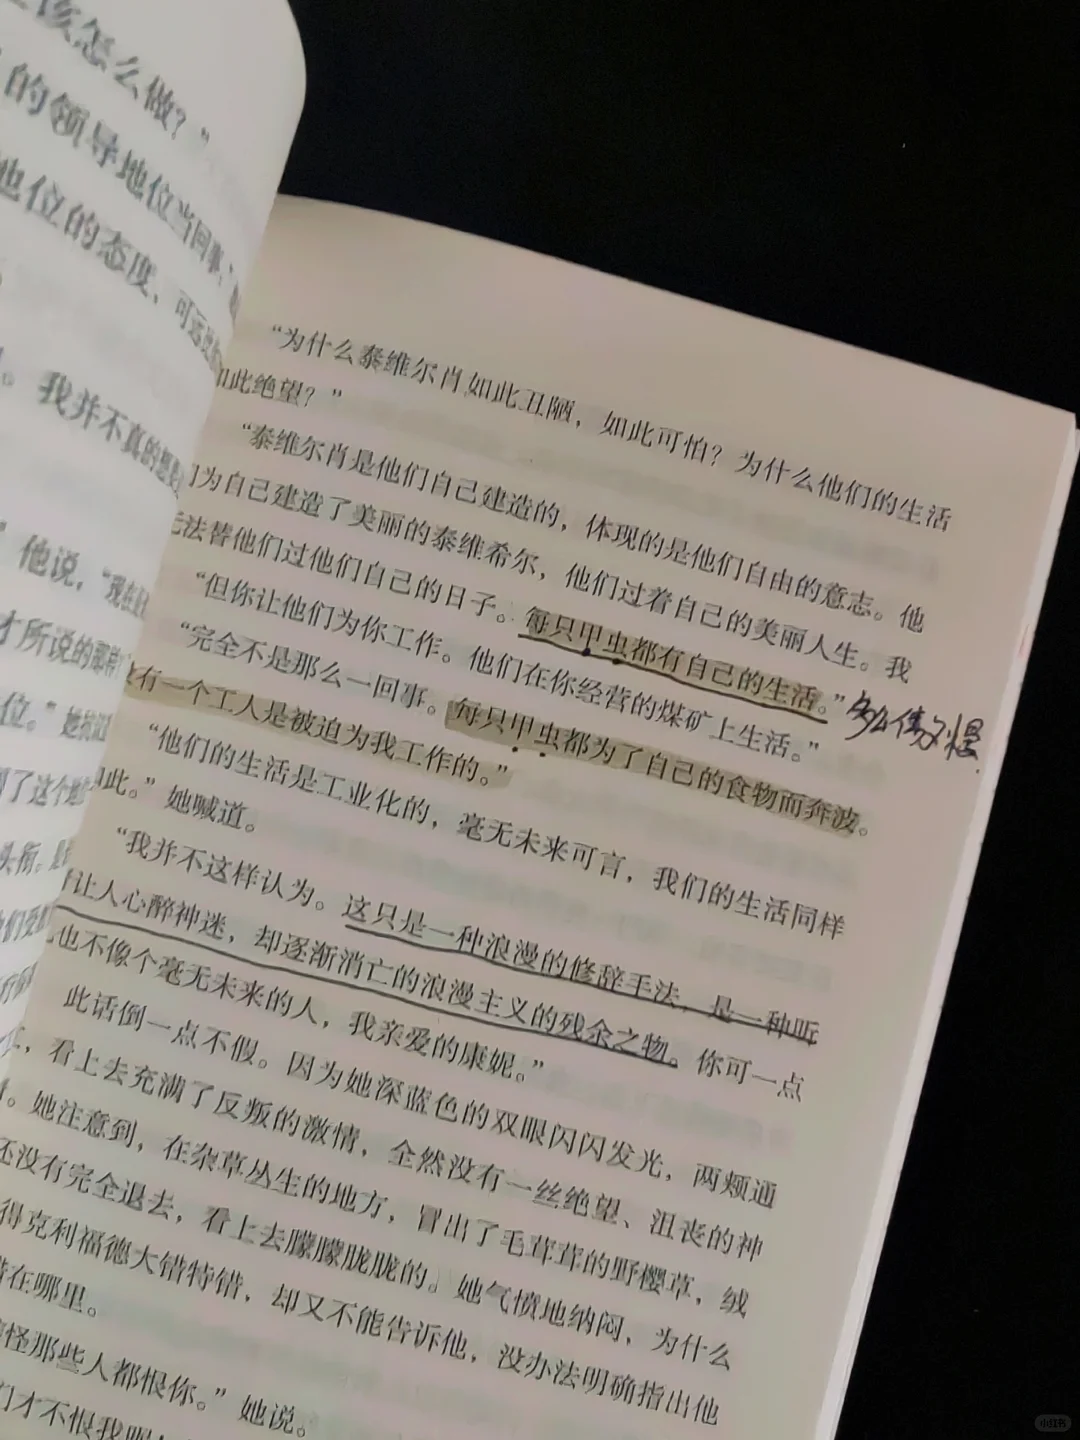 该怎么做？”
的领导地位当回事，
地位的态度，可远比
。我并不真的想
”他说，“现在
才所说的那样
位。”她
到了这个地
头衔，
“为什么泰维尔肖如此丑陋，如此可怕？为什么他们的生活
如此绝望？”
“泰维尔肖是他们自己建造的，体现的是他们自由的意志。他
们为自己建造了美丽的泰维希尔，他们过着自己的美丽人生。我
无法替他们过他们自己的日子。每只甲虫都有自己的生活。”
多么傲慢
“但你让他们为你工作。他们在你经营的煤矿上生活。”
“完全不是那么一回事。每只甲虫都为了自己的食物而奔波。
没有一个工人是被迫为我工作的。”
“他们的生活是工业化的，毫无未来可言，我们的生活同样
如此。”她喊道。
“我并不这样认为。这只是一种浪漫的修辞手法，是一种听
让人心醉神迷，却逐渐消亡的浪漫主义的残余之物。你可一点
也不像个毫无未来的人，我亲爱的康妮。”
此话倒一点不假。因为她深蓝色的双眼闪闪发光，两颊通
，看上去充满了反叛的激情，全然没有一丝绝望、沮丧的神
。她注意到，在杂草丛生的地方，冒出了毛茸茸的野樱草，绒
还没有完全退去，看上去朦朦胧胧的。她气愤地纳闷，为什么
得克利福德大错特错，却又不能告诉他，没办法明确指出他
错在哪里。
怪那些人都恨你。”她说。
们才不恨我呢
小红书